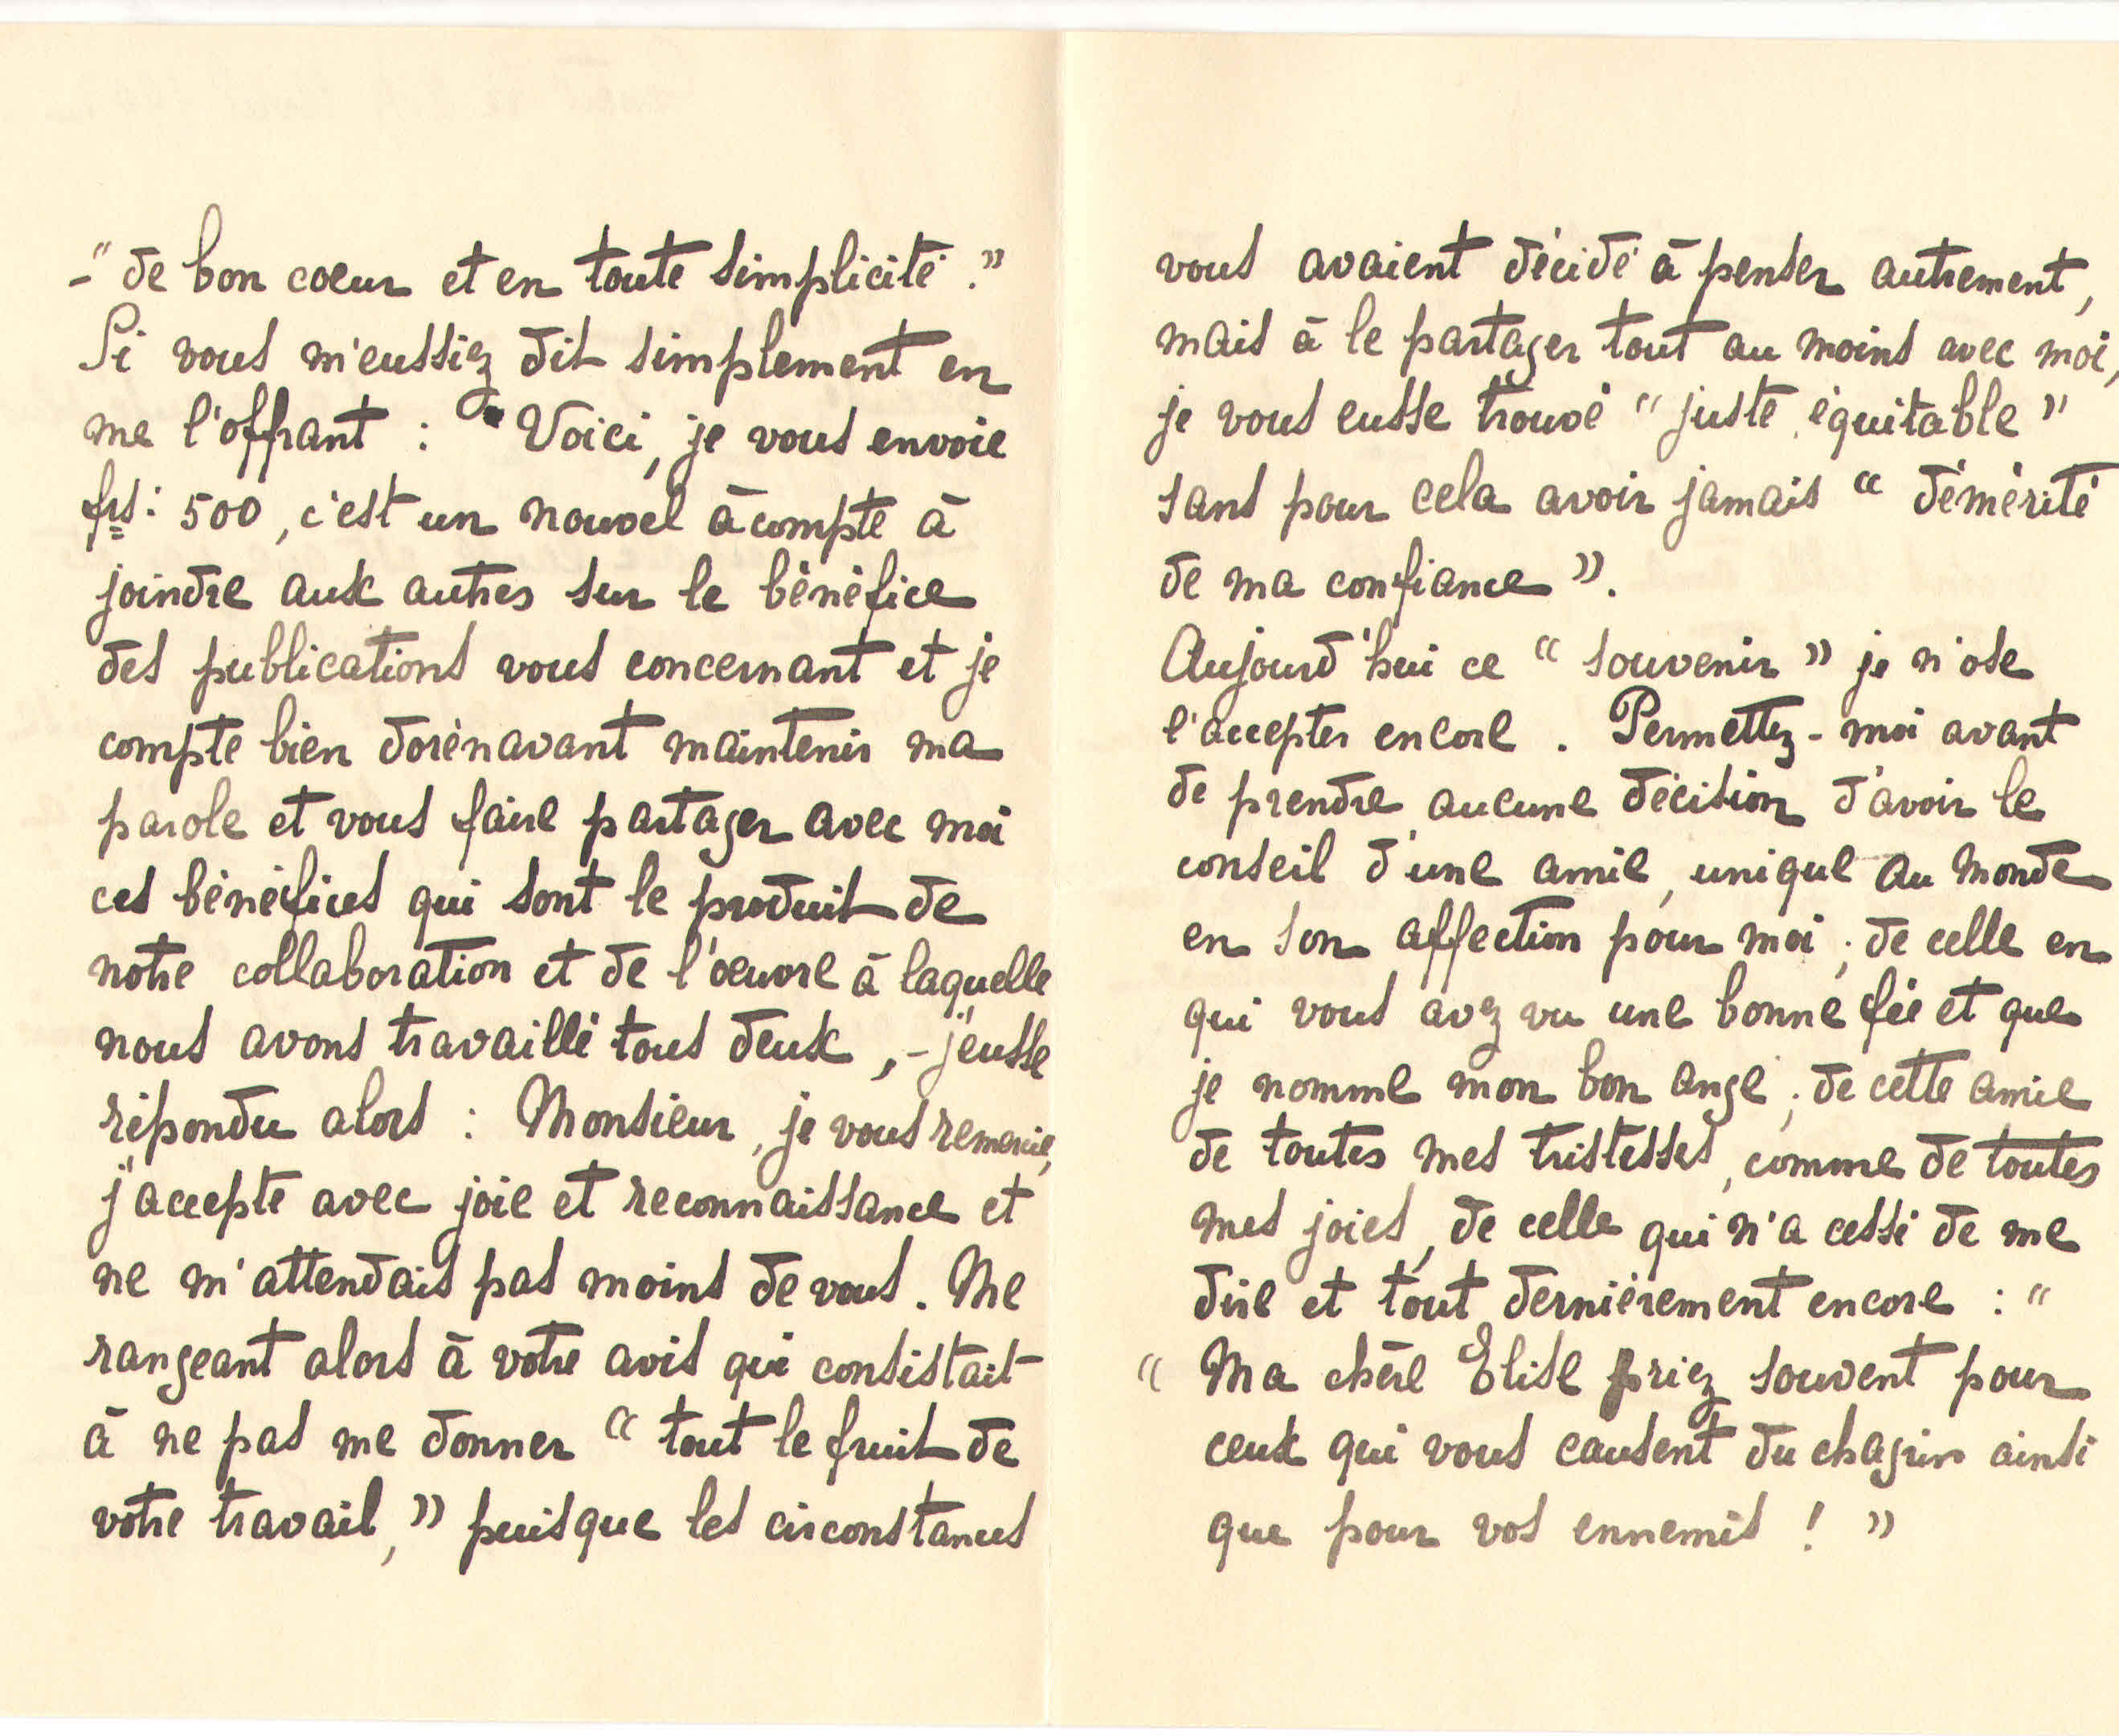 -"de bon coeur et en toute simplicité."
Si vous m'eussiez dit simplement en
me l'offrant : "Voici, je vous envoie
frs: 500, c'est un nouvel àcompte à
joindre aux autres sur le bénéfice
des publications vous concernant et je
compte bien dorénavant maintenir ma
parole et vous faire partager avec moi
ces bénéfices qui sont le produit de
notre collaboration et de l'oeuvre à laquelle
nous avons travaillé tous deux, - j'eusse
répondu alors : Monsieur, je vous remercie,
j'accepte avec joie et reconnaissance et
ne m'attendais pas moins de vous. Me
rangeant alors à votre avis qui consistait
à ne pas me donner "tout le fruit de
votre travail," puisque les circonstances
vous avaient décidé à penser autrement,
mais à le partager tout au moins avec moi,
je vous eusse trouvé "juste, équitable"
sans pour cela avoir jamais "démérité
de ma confiance".
Aujourd'hui ce "souvenir" je n'ose
l'accepter encore. Permettez-moi avant
de prendre aucune décision d'avoir le
conseil d'une amie, unique au monde
en son affection pour moi ; de celle en
qui vous avez vu une bonne fée et que
je nomme mon bon ange ; de cette amie
de toutes mes tristesses, comme de toutes
mes joies, de celle qui n'a cessé de me
dire et tout dernièrement encore : "
"Ma chère Elise priez souvent pour
ceux qui vous causent du chagrin ainsi
que pour vos ennemis ! "